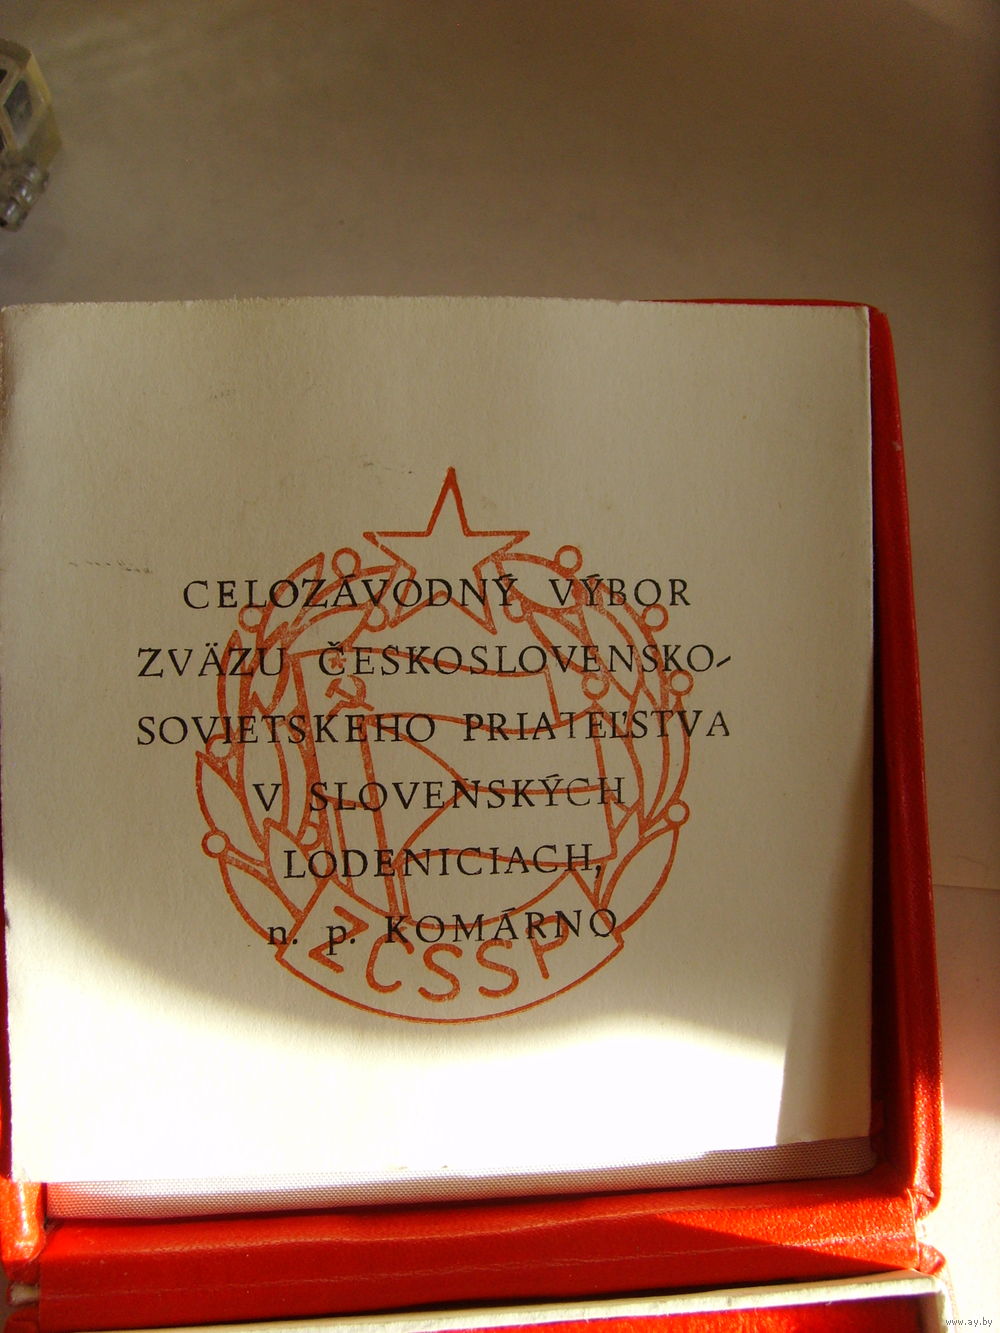 CELOZÁVODNÝ VÝBOR
ZVÄZU ČESKOSLOVENSKO-
SOVIETSKEHO PRIATEĽSTVA
V SLOVENSKÝCH
LODENICIACH,
n. p. KOMÁRNO
ZČSSP
www.ay.by